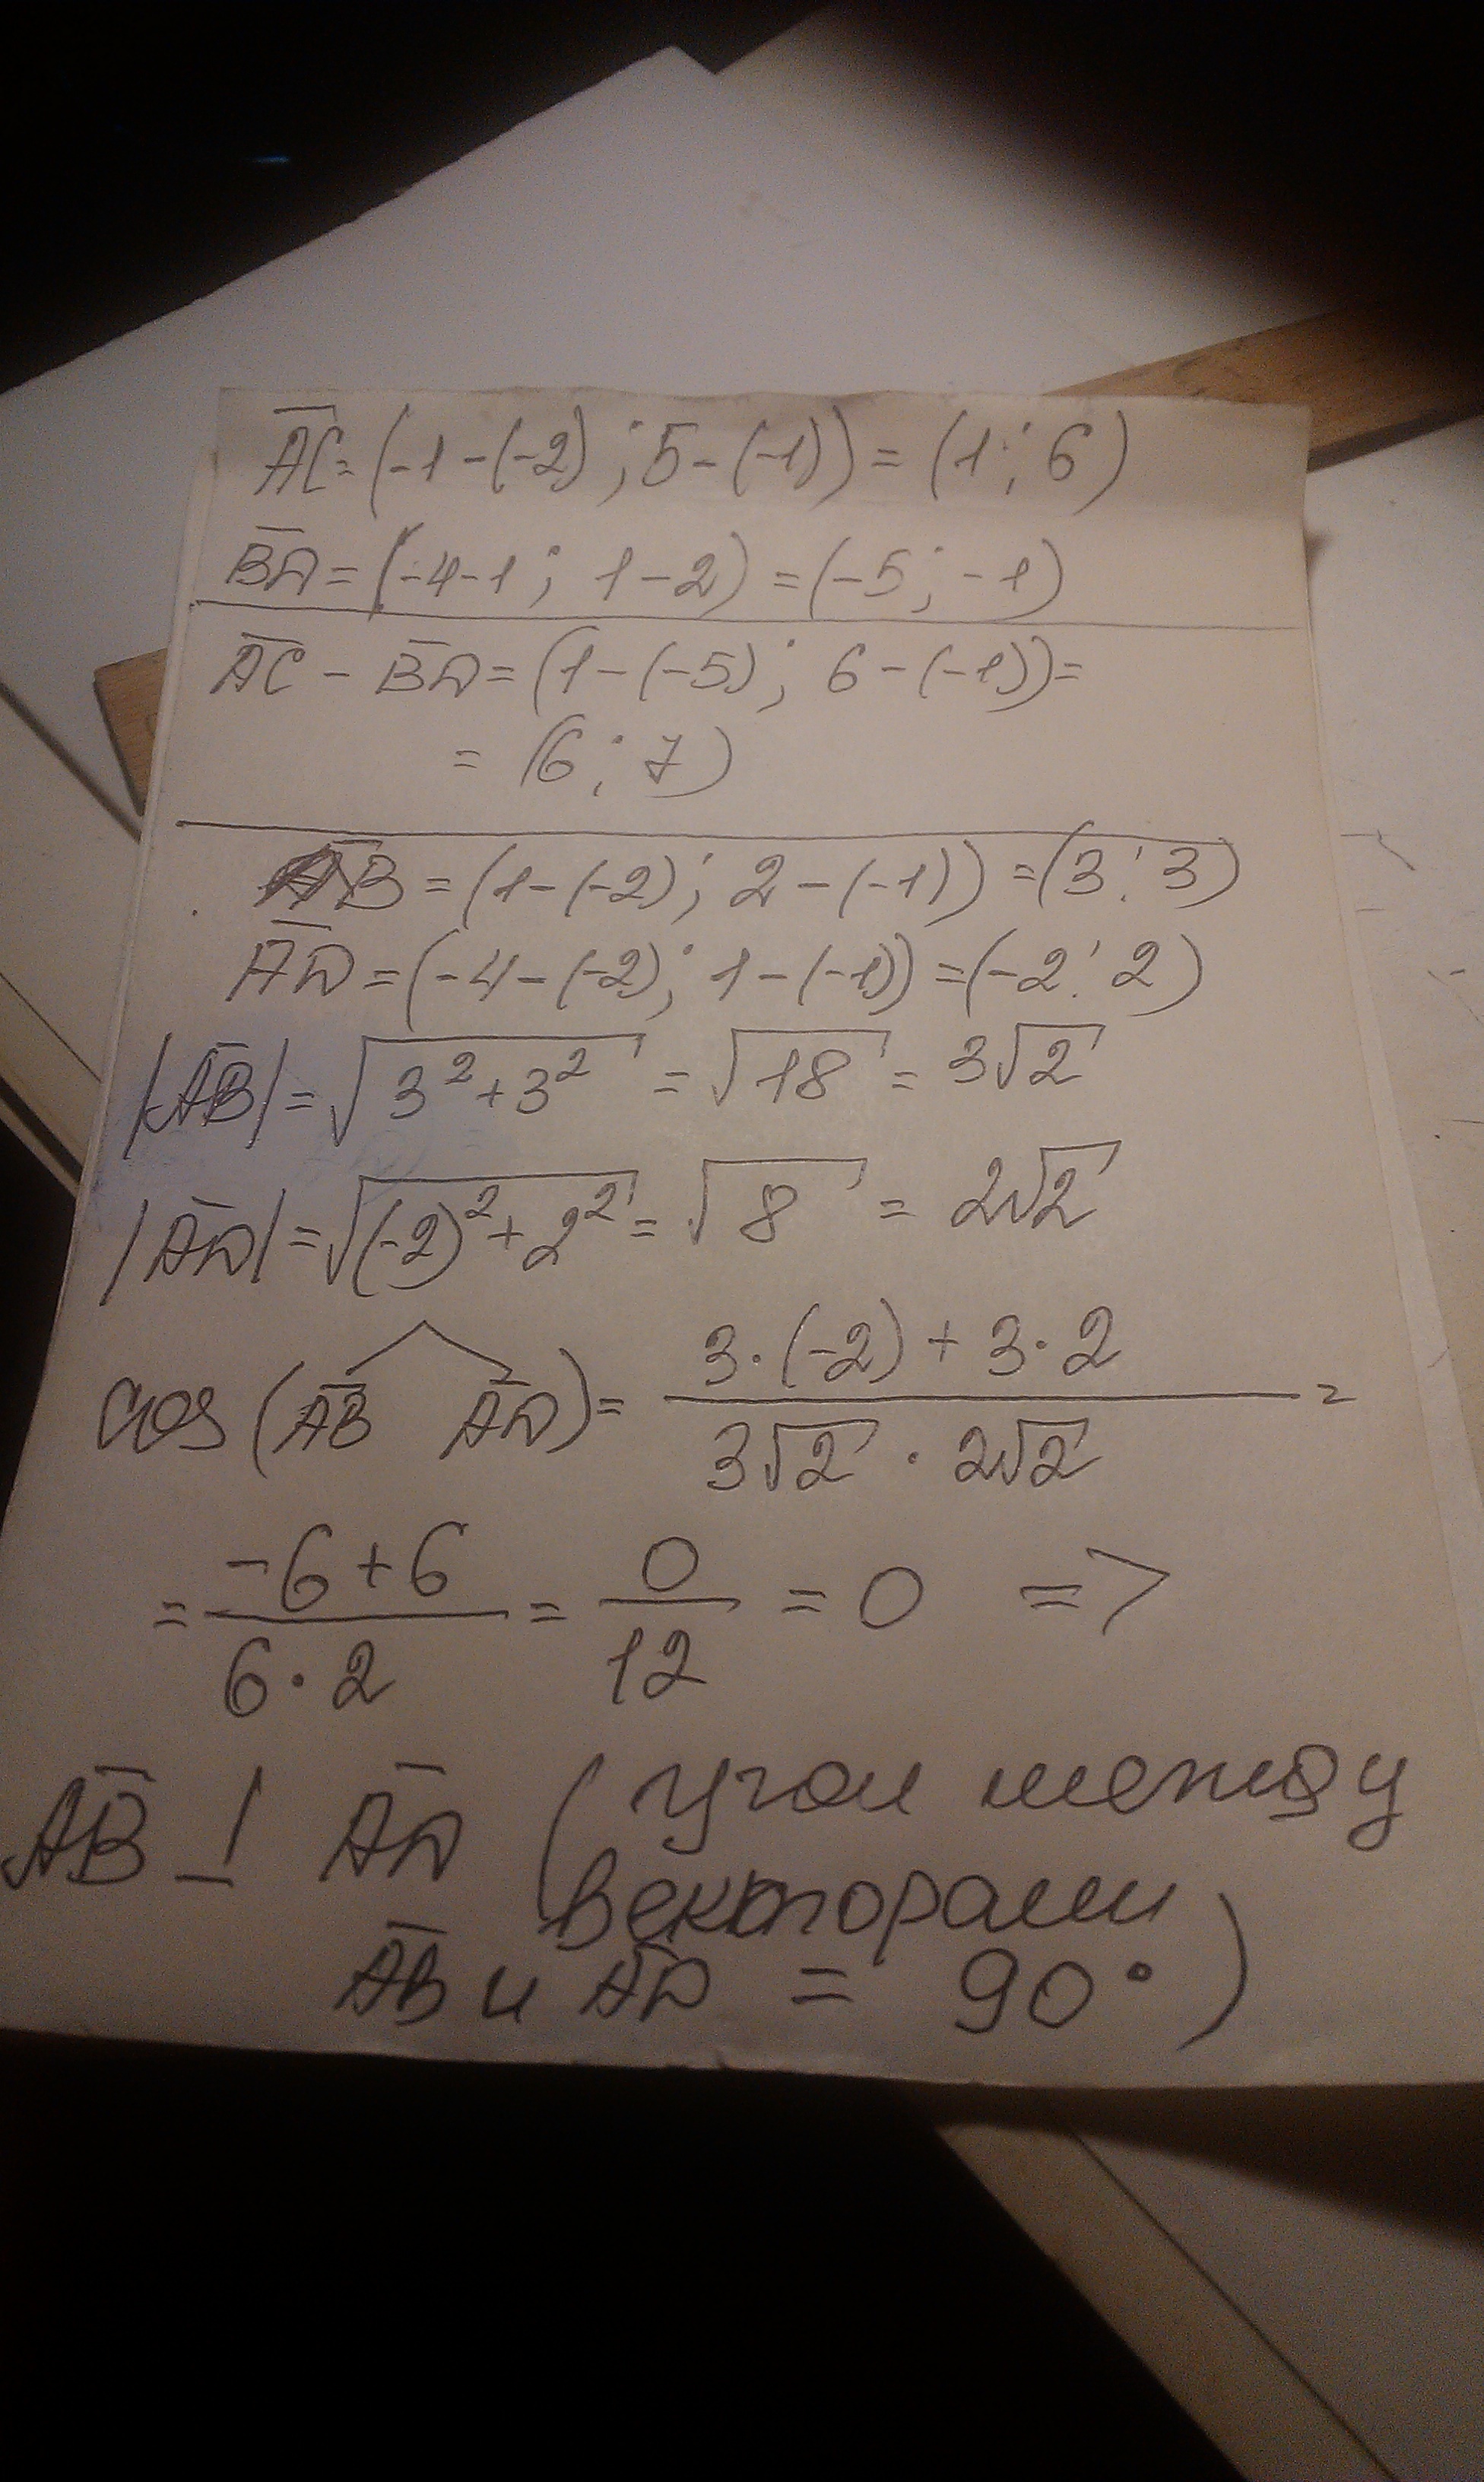 A̅C̅ = (-1-(-2); 5-(-1)) = (1; 6)
B̅D̅ = (-4-1; 1-2) = (-5; -1)
A̅C̅ - B̅D̅ = (1-(-5); 6-(-1)) =
= (6; 7)
A̅B̅ = (1-(-2); 2-(-1)) = (3; 3)
A̅D̅ = (-4-(-2); 1-(-1)) = (-2; 2)
|A̅B̅| = √(3²+3²) = √18 = 3√2
|A̅D̅| = √((-2)²+2²) = √8 = 2√2
cos(A̅B̅ ^ A̅D̅) = (3·(-2)+3·2)/(3√2 · 2√2) =
= (-6+6)/(6·2) = 0/12 = 0 =>
A̅B̅ ⊥ A̅D̅ (угол между
векторами
A̅B̅ и A̅D̅ = 90°)